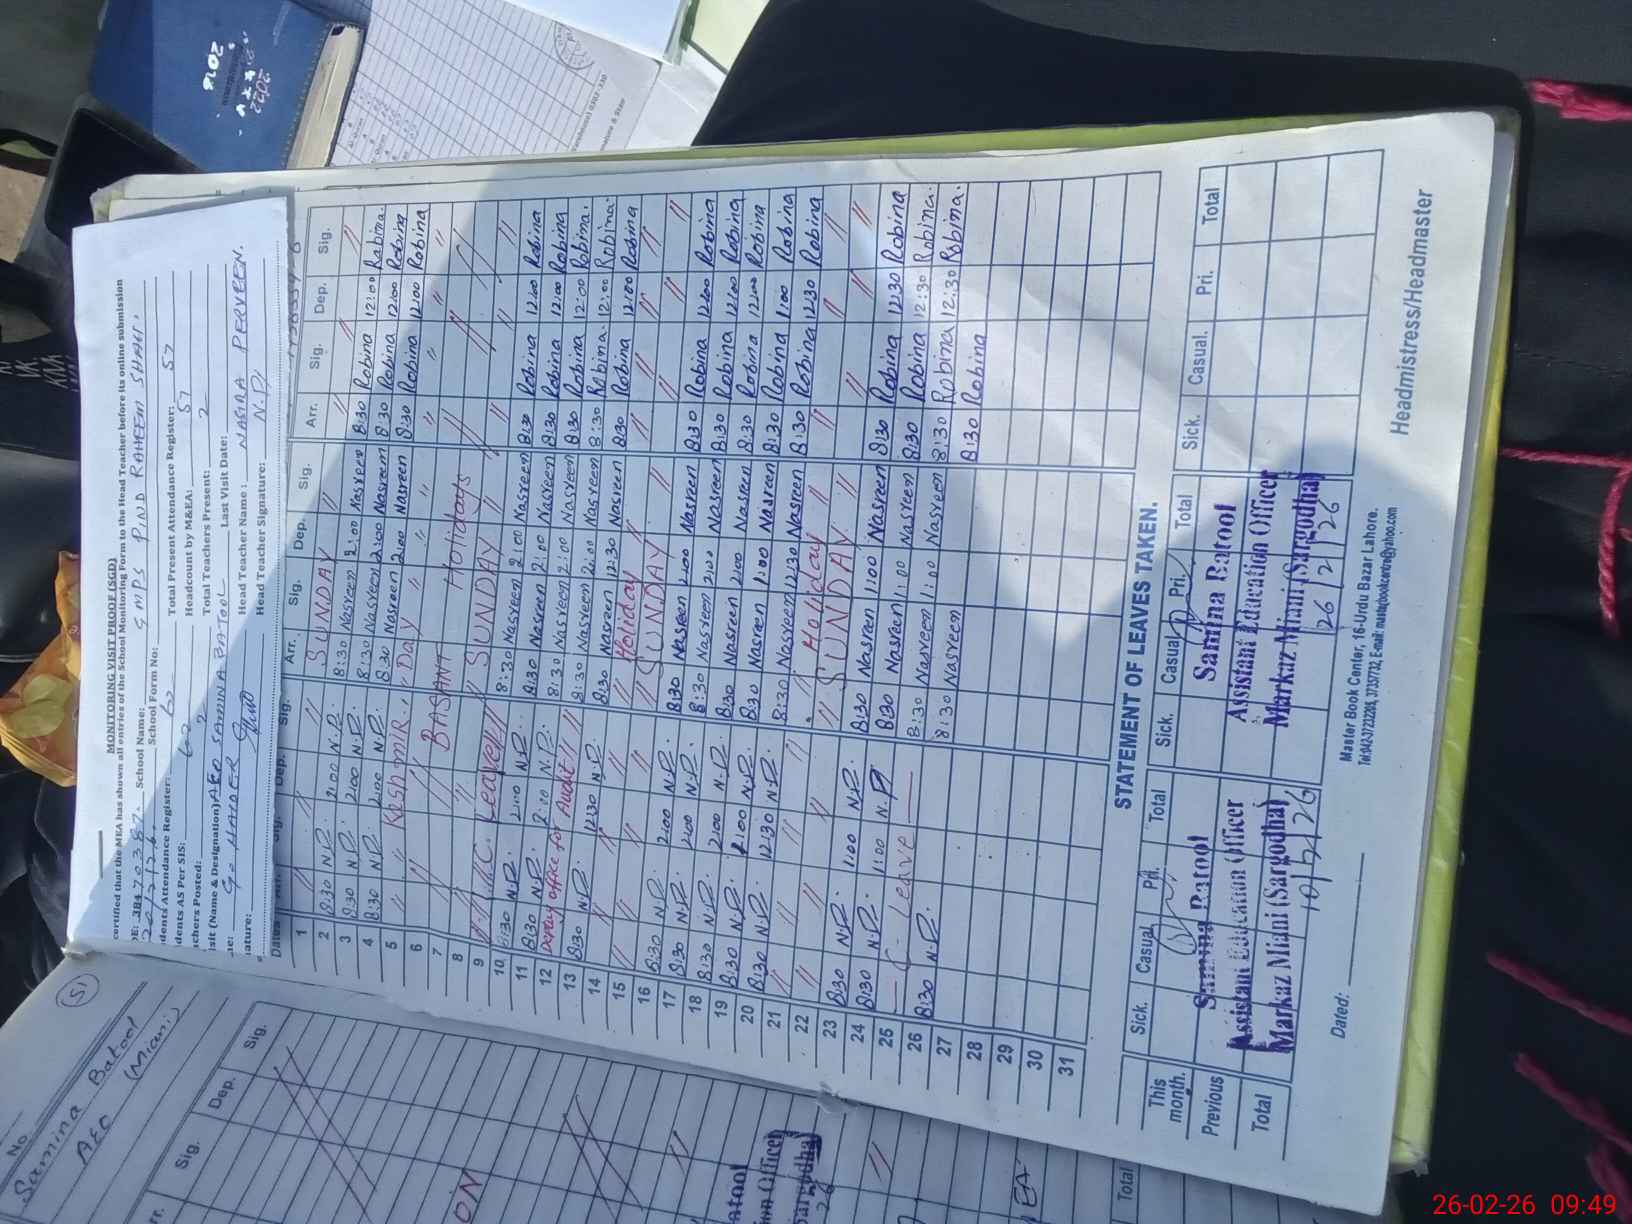 MONITORING VISIT PROOF (SGD)
certified that the MEA has shown all entries of the School Monitoring Form to the Head Teacher before its online submission
DE: 38470387. School Name: GMPS PIND RAHEEM SHAH.
School Form No:
dents Attendance Register: 62 Total Present Attendance Register: 57
dents AS Per SIS: 62 Headcount by M&EA: 57
chers Posted: 2 Total Teachers Present: 2
isit (Name & Designation) AEO SAMINA BATOOL Last Visit Date:
HAIDER Head Teacher Name: NASIRA PERVEEN.
ature: Head Teacher Signature: N.P
Arr. Sig. Dep. Sig. Arr. Sig. Dep. Sig.
1 〃 SUNDAY 〃
2 8:30 N.P. 2:00 N.P. 8:30 Nasreen 2:00 Nasreen 8:30 Robina 12:00 Robina.
3 8:30 N.P. 2:00 N.P. 8:30 Nasreen 2:00 Nasreen 8:30 Robina 12:00 Robina
4 8:30 N.P. 2:00 N.P. 8:30 Nasreen 2:00 Nasreen 8:30 Robina 12:00 Robina
5 〃 Kashmir 〃 Day 〃
6 〃 BASANT Holidays 〃
7
8 〃 SUNDAY 〃
9 Leave 8:30 Nasreen 2:00 Nasreen 8:30 Robina 12:00 Robina
10 8:30 N.P. 2:00 N.P. 8:30 Nasreen 2:00 Nasreen 8:30 Robina 12:00 Robina
11 8:30 N.P. 2:00 N.P. 8:30 Nasreen 2:00 Nasreen 8:30 Robina 12:00 Robina.
12 office for Audit 8:30 Nasreen 2:00 Nasreen 8:30 Robina 12:00 Robina.
13 8:30 N.P. 12:30 N.P. 8:30 Nasreen 12:30 Nasreen 8:30 Robina 12:00 Robina
14 〃 Holiday 〃
15 〃 SUNDAY 〃
16 8:30 N.P. 2:00 N.P. 8:30 Nasreen 2:00 Nasreen 8:30 Robina 12:00 Robina
17 8:30 N.P. 2:00 N.P. 8:30 Nasreen 2:00 Nasreen 8:30 Robina 12:00 Robina
18 8:30 N.P. 2:00 N.P. 8:30 Nasreen 2:00 Nasreen 8:30 Robina 12:00 Robina
19 8:30 N.P. 2:00 N.P. 8:30 Nasreen 1:00 Nasreen 8:30 Robina 1:00 Robina
20 8:30 N.P. 12:30 N.P. 8:30 Nasreen 12:30 Nasreen 8:30 Robina 12:30 Robina
21 〃 Holiday 〃
22 〃 SUNDAY 〃
23 8:30 N.P. 1:00 N.P. 8:30 Nasreen 1:00 Nasreen 8:30 Robina 12:30 Robina
24 8:30 N.P. 1:00 N.P 8:30 Nasreen 1:00 Nasreen 8:30 Robina 12:30 Robina.
25 — C. Leave — 8:30 Nasreen 1:00 Nasreen 8:30 Robina 12:30 Robina.
26 8:30 N.P. 8:30 Nasreen 8:30 Robina
27
28
29
30
31
STATEMENT OF LEAVES TAKEN.
Sick. Casual. Pri. Total Sick. Casual Pri. Total Sick. Casual. Pri. Total
This month.
Previous
Total
Samina Batool
Assistant Education Officer
Markaz Miani (Sargodha)
10/2/26
Samina Batool
Assistant Education Officer
Markaz Miani (Sargodha)
26/2/26
Dated:
Master Book Center, 16-Urdu Bazar Lahore.
Headmistress/Headmaster
No.
Samina Batool
AEO (Miani)
Sig. Dep. Sig.
Total
2018
2022
26-02-26 09:49